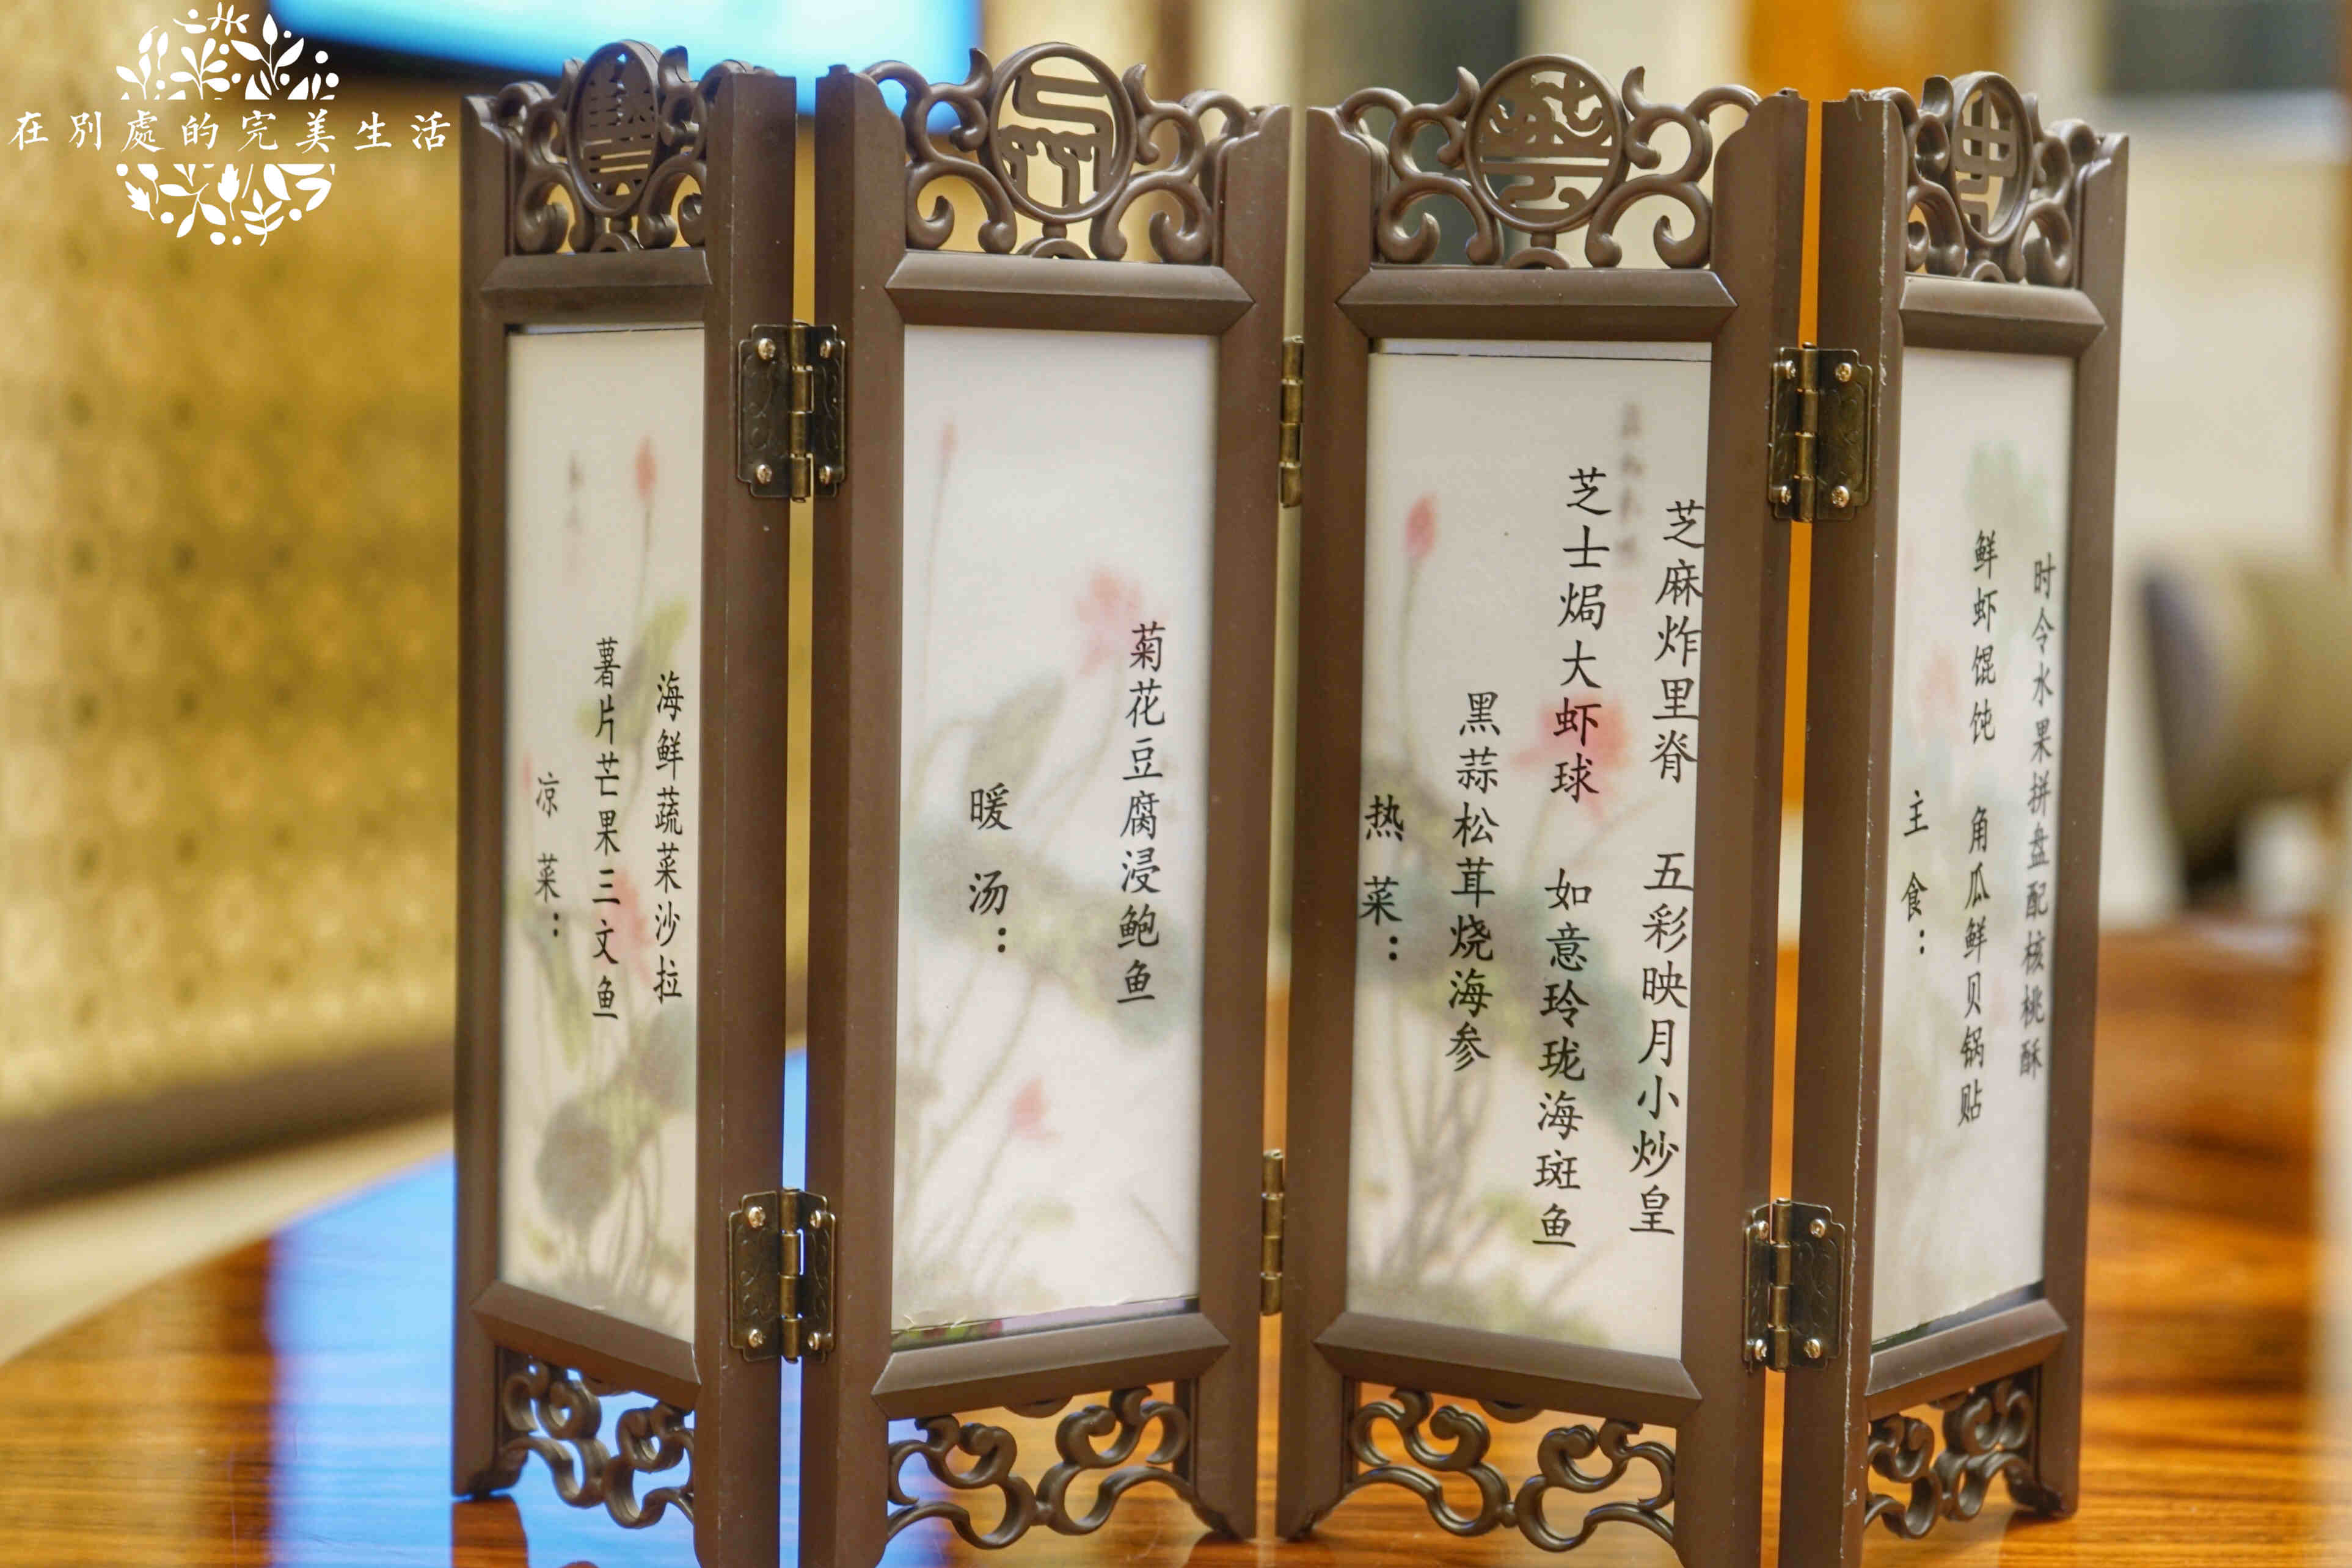 在別處的完美生活
凉菜：
薯片芒果三文鱼
海鲜蔬菜沙拉
暖汤：
菊花豆腐浸鲍鱼
热菜：
黑蒜松茸烧海参
芝士焗大虾球 如意玲珑海斑鱼
芝麻炸里脊 五彩映月小炒皇
主食：
鲜虾馄饨 角瓜鲜贝锅贴
时令水果拼盘配核桃酥